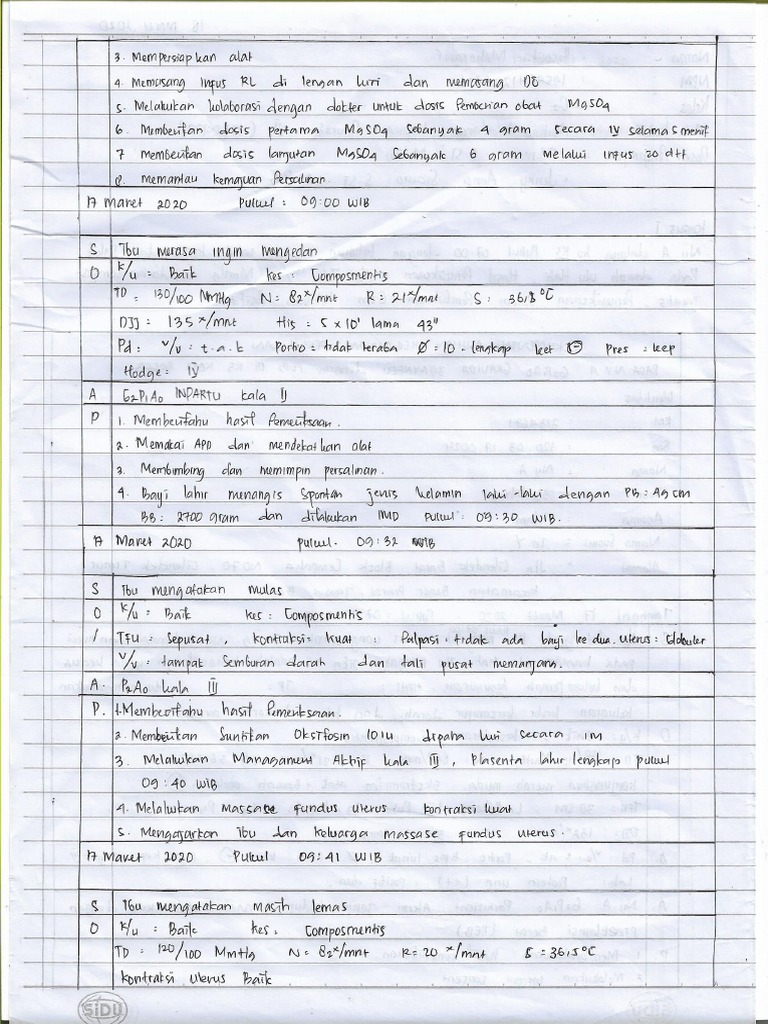 3. Mempersiapkan alat
4. Memasang Infus RL di lengan kiri dan memasang DC
5. Melakukan kolaborasi dengan dokter untuk dosis Pemberian obat MgSO4
6. Memberikan dosis pertama MgSO4 Sebanyak 4 gram secara IV selama 5 menit
7 memberikan dosis lanjutan MgSO4 Sebanyak 6 gram Melalui infus 20 dtt
8. memantau kemajuan Persalinan.
17 Maret 2020 Pukul : 09:00 WIB
S Ibu merasa ingin mengedan
O K/u : Baik kes : Composmentis
TD = 130/100 MmHg N = 82x/mnt R = 21x/mnt S : 36,8 °C
DJJ = 135 x/mnt His = 5 x 10' lama 43"
Pd : v/v = t.a.k Portio = tidak teraba Ø = 10 - lengkap ket (-) Pres = kep
Hodge = IV
A G2P1A0 INPARTU kala II
P 1. Memberitahu hasil Pemeriksaan.
2. Memakai APD dan mendekatkan alat
3. Membimbing dan memimpin persalinan.
4. Bayi lahir menangis Spontan jenis kelamin laki-laki dengan PB = 49 cm
BB = 2700 gram dan dilakukan IMD Pukul : 09:30 WIB.
17 Maret 2020 pukul. 09:32 WIB
S Ibu mengatakan mulas
O K/u = Baik kes : Composmentis
/ TFU = Sepusat, kontraksi = Kuat : Palpasi = tidak ada bayi ke dua. Uterus = Globuler
V/v = tampak Semburan darah dan tali pusat memanjang.
A. P2A0 kala III
P. 1. Memberitahu hasil Pemeriksaan.
2. Memberikan Suntikan Oksitosin 10 IU dipaha kiri secara IM
3. Melakukan Managament Aktif kala III, Plasenta lahir lengkap pukul
09:40 WIB
4. Melakukan Massase fundus uterus kontraksi kuat
5. Mengajarkan Ibu dan keluarga massase fundus uterus.
17 Maret 2020 Pukul 09:41 WIB
S Ibu mengatakan masih lemas
O K/u = Baik kes, Composmentis
TD = 120/100 MmHg N = 82x/mnt R = 20 x/mnt S = 36,5°C
kontraksi uterus Baik
SiDU
SiDU